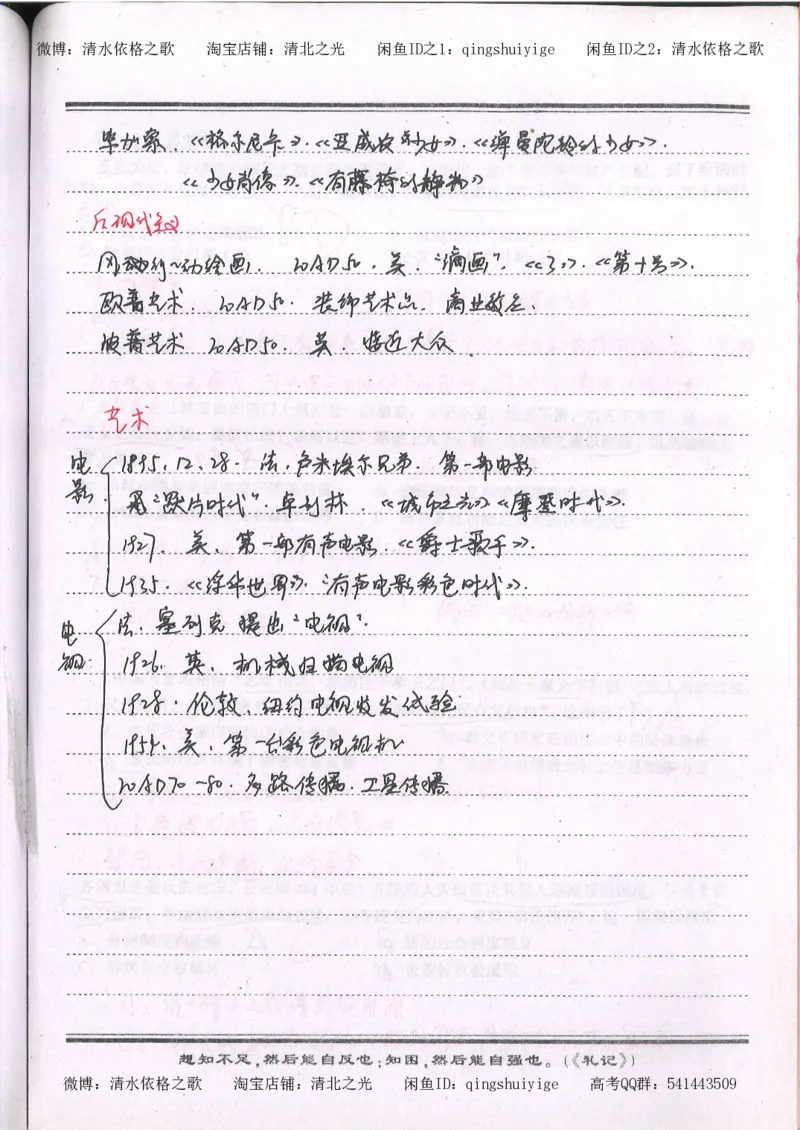 微博：清水依格之歌 淘宝店铺：清北之光 闲鱼ID之1：qingshuiyige 闲鱼ID之2：清水依格之歌
毕加索 《格尔尼卡》.《亚威农少女》.《弹曼陀铃的少女》.
《少女肖像》.《有藤椅的静物》
后现代主义
行动绘画. 20AD50. 美. "滴画". 《30》.《第十号》.
欧普艺术. 20AD50. 装饰艺术品. 商业效益.
波普艺术 20AD50. 英. 临近大众.
艺术
电影 1895.12.28. 法. 卢米埃尔兄弟. 第一部电影
"默片时代". 卓别林. 《城市之光》《摩登时代》.
1927. 美. 第一部有声电影.《爵士歌手》.
1935. 《浮华世界》. "有声电影彩色时代".
电视 法. 塞列克提出"电视".
1926. 英. 机械扫描电视
1928. 伦敦. 纽约电视收发试验
1954. 美. 第一台彩色电视机
20AD70-80. 多路传播. 卫星传播
想知不足，然后能自反也；知困，然后能自强也。（《礼记》）
微博：清水依格之歌 淘宝店铺：清北之光 闲鱼ID：qingshuiyige 高考QQ群：541443509